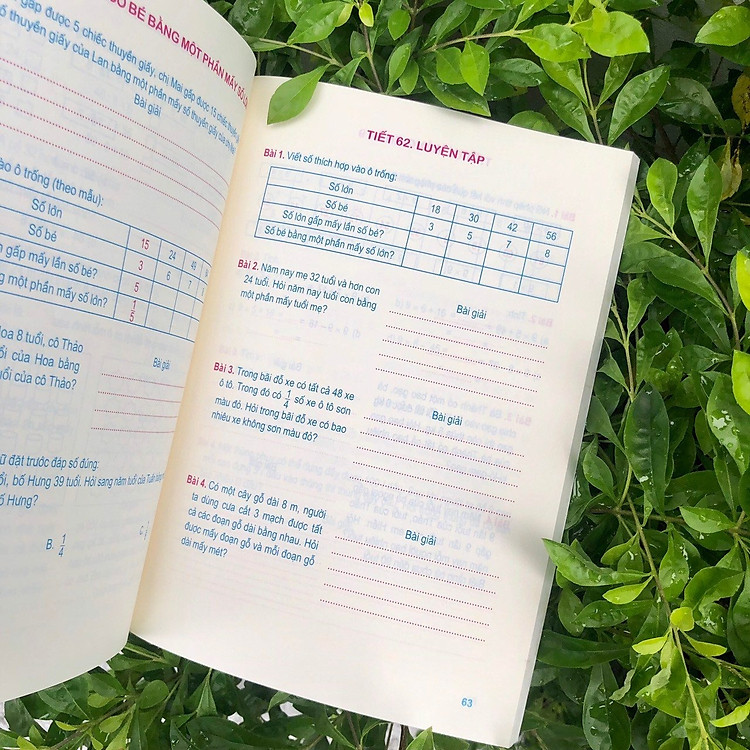 SỐ BÉ BẰNG MỘT PHẦN MẤY SỐ
gấp được 5 chiếc thuyền giấy, chị Mai gấp được 15 chiếc thuyền
số thuyền giấy của Lan bằng một phần mấy số thuyền giấy của chị Mai?
Bài giải
vào ô trống (theo mẫu):
Số lớn 15 24 49
Số bé 3 6 7
gấp mấy lần số bé? 5
bằng một phần mấy số lớn? 1/5
Hoa 8 tuổi, cô Thảo
tuổi của Hoa bằng
tuổi của cô Thảo?
Bài giải
chữ đặt trước đáp số đúng:
bố Hưng 39 tuổi. Hỏi sang năm tuổi của
bố Hưng?
B. 1/4
TIẾT 62. LUYỆN TẬP
Bài 1. Viết số thích hợp vào ô trống:
Số lớn 18 30 42 56
Số bé 3 5 7 8
Số lớn gấp mấy lần số bé?
Số bé bằng một phần mấy số lớn?
Bài 2. Năm nay mẹ 32 tuổi và hơn con
24 tuổi. Hỏi năm nay tuổi con bằng
một phần mấy tuổi mẹ?
Bài giải
Bài 3. Trong bãi đỗ xe có tất cả 48 xe
ô tô. Trong đó có 1/4 số xe ô tô sơn
màu đỏ. Hỏi trong bãi đỗ xe có bao
nhiêu xe không sơn màu đỏ?
Bài giải
Bài 4. Có một cây gỗ dài 8 m, người
ta dùng cưa cắt 3 mạch được tất
cả các đoạn gỗ dài bằng nhau. Hỏi
được mấy đoạn gỗ và mỗi đoạn gỗ
dài mấy mét?
Bài giải
63